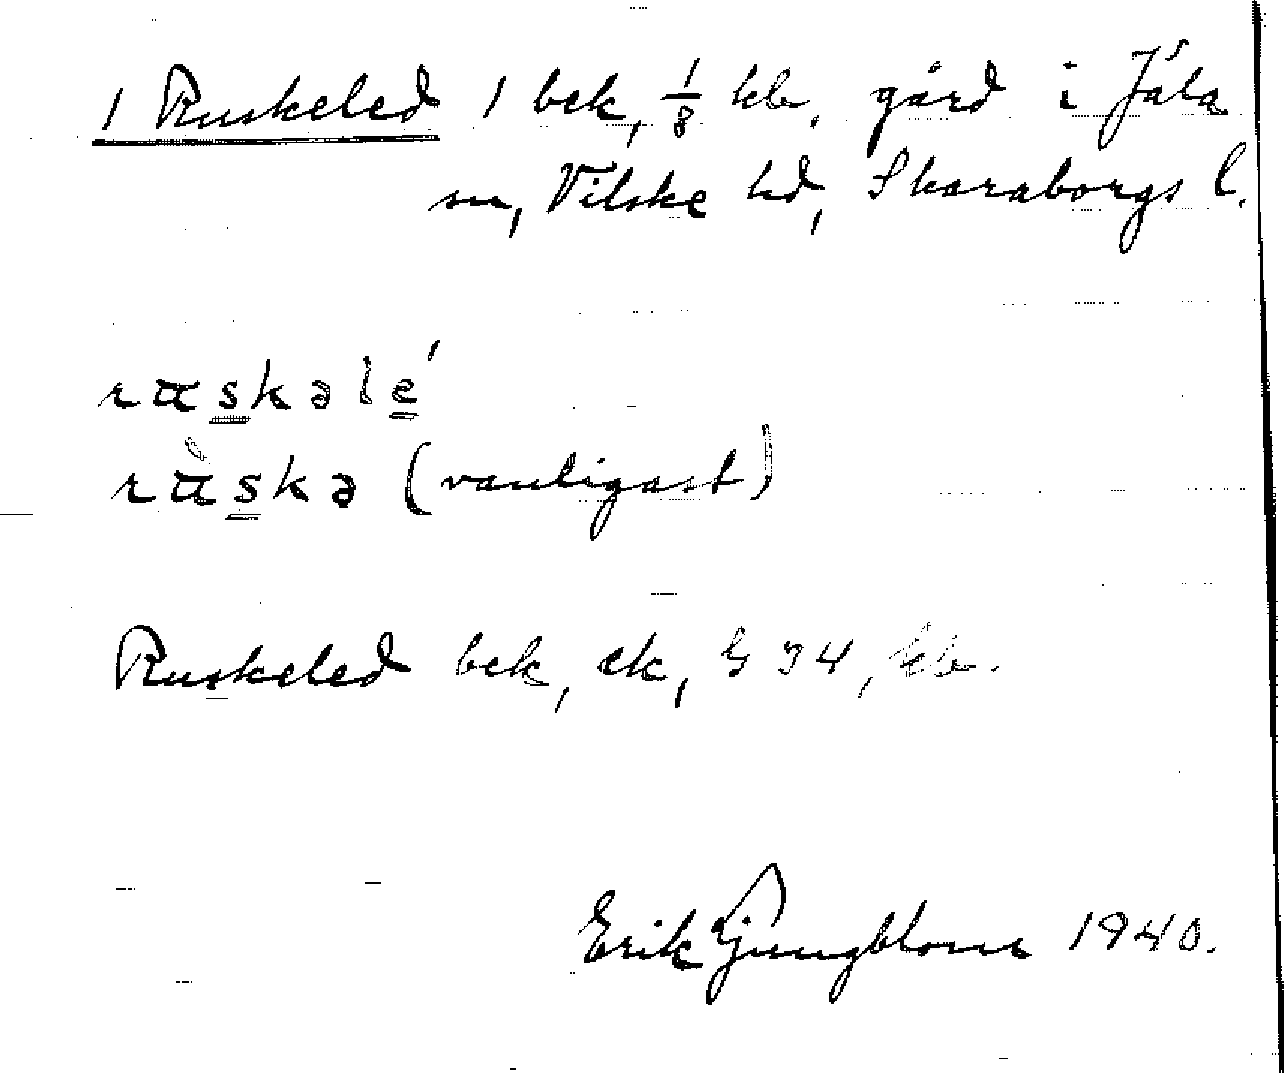 1 Ruskeled 1 bek, 1/8 kb. gård i Jäla
sn, Vilske hd, Skaraborgs l.
ruskəlé
rùskə (vanligast)
Ruskeled bek, ek, 34, kb.
Erik Ljungblom 1940.